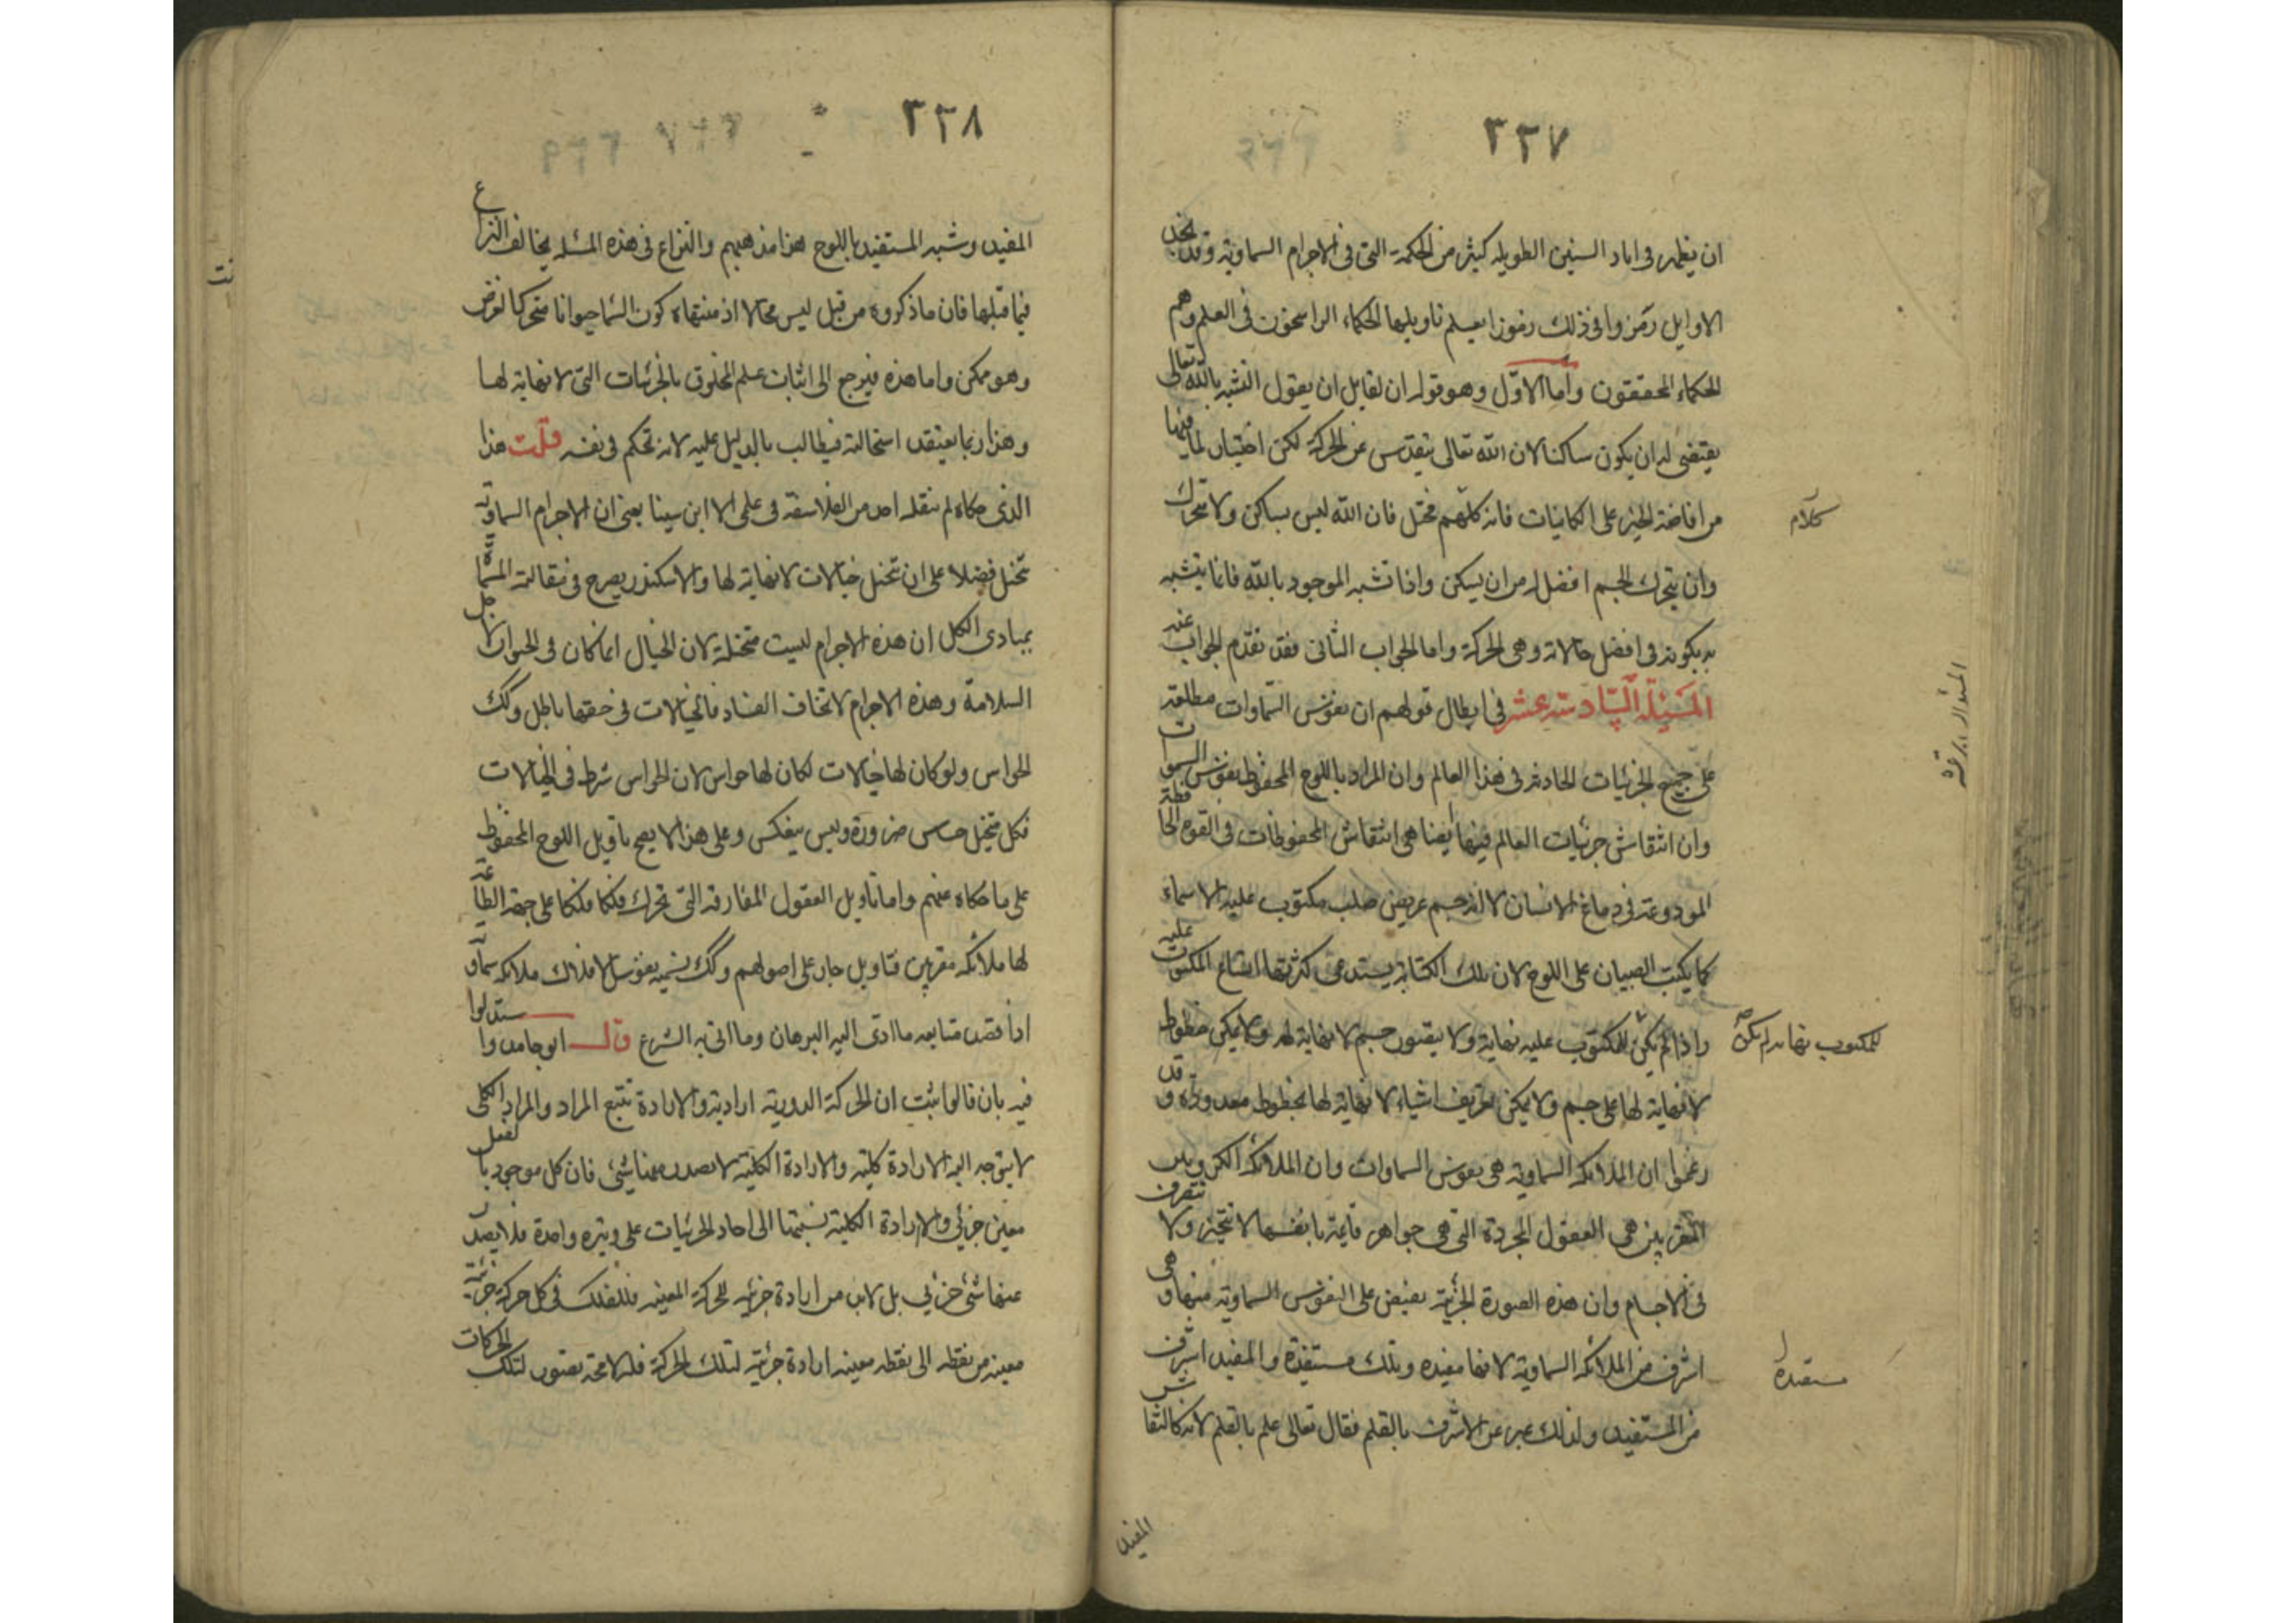 ٢٣٧
ان يظهر فى اباد السنين الطويله كثير من الحكمة التى فى الاجرام السماوية وقد نجد
الاوايل رمزوا فى ذلك رموزا يعلم تاويلها الحكماء الراسخون فى العلم وهم
الحكماء المحققون واما الاول وهو قوله ان لقايل ان يقول التشبه بالله تعالى
يقتضى له ان يكون ساكنا لان الله تعالى يتقدس عن الحركة لكن اختيار لما فيها
من افاضة الخير على الكاينات فانه كلهم مختل فان الله ليس بساكن ولا متحرك
كلام
وان يتحرك الجسم افضل له من ان يسكن واذا تشبه الموجود بالله فانما يتشبه
به بكونه فى افضل حالاته وهى الحركة واما الجواب الثانى فقد تقدم الجواب عنه
المسئلة السادسة عشر فى ابطال قولهم ان نفوس السماوات مطلعة
على جميع الجزئيات الحادثه فى هذا العالم وان المراد باللوح المحفوظ نفوس السموات
وان انتقاش جزئيات العالم فيها ايضا هى انتقاش المحفوظات فى القوه الحافظة
المودوعة فى دماغ الانسان لا انه جسم عريض صلب مكتوب عليه الاسماء
كما يكتب الصبيان على اللوح لان تلك الكتابة يستدعى كثرتها اتساع المكتوب عليه
واذا لم يكن للمكتوب عليه نهاية ولا يتصور جسم لا نهاية له ولا يمكن خطوط
للمكتوب نهاية لم يكن صح
لا نهاية لها على جسم ولا يمكن تعريف اشياء لا نهاية لها بخطوط معدودة وقد
زعموا ان الملائكه السماوية هى نفوس السماوات وان الملائكه الكروبيين
المقربين هى العقول المجردة التى هى جواهر قايمة بانفسها لا تتحيز ولا تتصرف
فى الاجسام وان هذه الصورة الجزئية تفيض على النفوس السماوية منها وهى
اشرف من الملائكه السماوية لانها مفيده وتلك مستفدة والمفيد اشرف
مستفيدة
من المستفيد ولذلك عبر عن الاشرف بالقلم فقال تعالى علم بالقلم لانه كالنقاش
المفيد
٢٣٨
المفيد وشبه المستفيد باللوح هذا مذهبهم والنزاع فى هذه المسئله يخالف النزاع
فيما قبلها فان ما ذكروه من قبل ليس محالا اذ منتهاه كون السما حيوانا متحركا لغرض
وهو ممكن واما هذه فيرجع الى اثبات علم المخلوق بالجزئيات التى لا نهاية لها
وهذا ربما يعتقد استحالته فيطالب بالدليل عليه لانه تحكم فى نفسه قلت هذا
الذى حكاه لم ينقله احد من الفلاسفة فى علمى الا ابن سينا يعنى ان الاجرام السماوية
تتخيل فضلا على ان تتخيل خيالات لا نهاية لها والاسكندر يصرح فى مقالته المسماة
بمبادى الكل ان هذه الاجرام ليست متخيلة لان الخيال انما كان فى الحيوان لاجل
السلامة وهذه الاجرام لا تخاف الفساد فالخيالات فى حقها باطل وكك
الحواس ولو كان لها خيالات لكان لها حواس لان الحواس شرط فى الخيالات
فكل متخيل حساس ضرورة وليس ينعكس وعلى هذا لا يصح تاويل اللوح المحفوظ
على ما حكاه عنهم واما تاويل العقول المفارقه التى تحرك فلكا فلكا على جهة الطاعة
لها ملائكه مقربين فتاويل جار على اصولهم وكك تسميه نفوس الافلاك ملائكه سماوية
اذا قصد متابعه ما ادى اليه البرهان وما اتى به الشرع قال ابو حامد واستدلوا
فيه بان قالوا ثبت ان الحركة الدورية ارادية والارادة تتبع المراد والمراد الكلى
لا يتوجه اليه الا ارادة كلية والارادة الكلية لا يصدر منها شئ فان كل موجود بالفعل
معين جزئى والارادة الكلية نسبتها الى احاد الجزئيات على وتيره واحدة فلا يصدر
عنها شئ جزئى بل لابد من ارادة جزئيه للحركة المعينه فللفلك فى كل حركة جزئية
معينه من نقطه الى نقطه معينه ارادة جزئية لتلك الحركة فله لا محة تصور لتلك الحركات